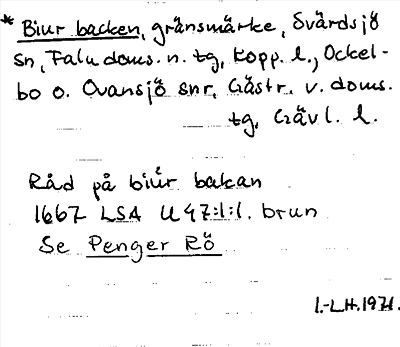 * Biur backen, gränsmärke, Svärdsjö
sn, Falu doms. n. tg, Kopp. l., Ockel-
bo o. Ovansjö snr, Gästr. v. doms.
tg, Gävl. l.
Råd på biúr bakan
1667 LSA U 47:1:1. brun
Se Penger Rö
I.-L.H. 1971.